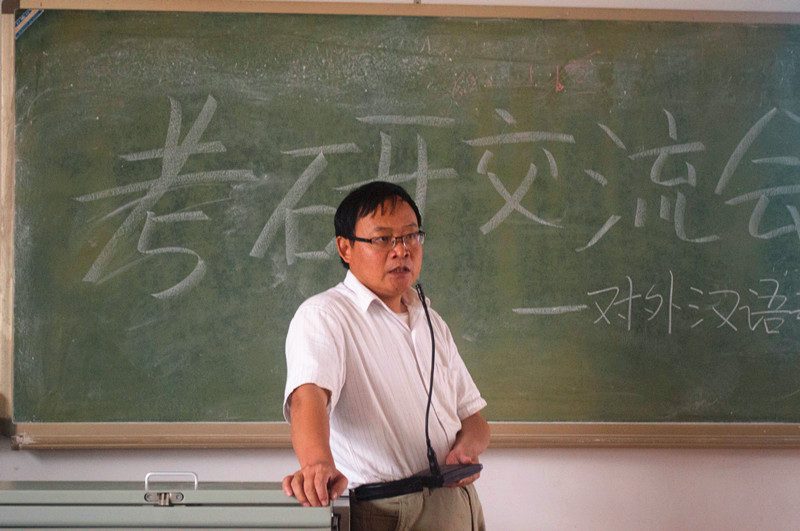 考研交流会
—对外汉语